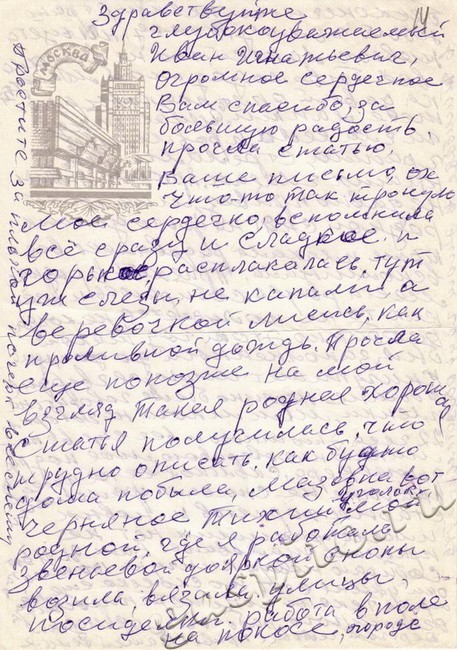 Здравствуйте
глубокоуважаемый
Иван Игнатьевич,
огромное сердечное
Вам спасибо за
большую радость,
прочла статью,
Ваше письмо, ох
что-то так тронуло
МОСКВА
моё сердечко, вспомнила
всё сразу и сладкое и
горькое, расплакалась, тут
уж слёзы не капали, а
верёвочкой лились, как
проливной дождь. Прочла
ещё попозже на мой
взгляд такая родная хорошая
статья получилась, что
трудно описать, как будто
дома побыла,
уголок
родной, где я работала
звеньевой дояркой снопы
возила, вязала. улицы,
посиделки. работа в поле
на покосе,
Простите за почерк